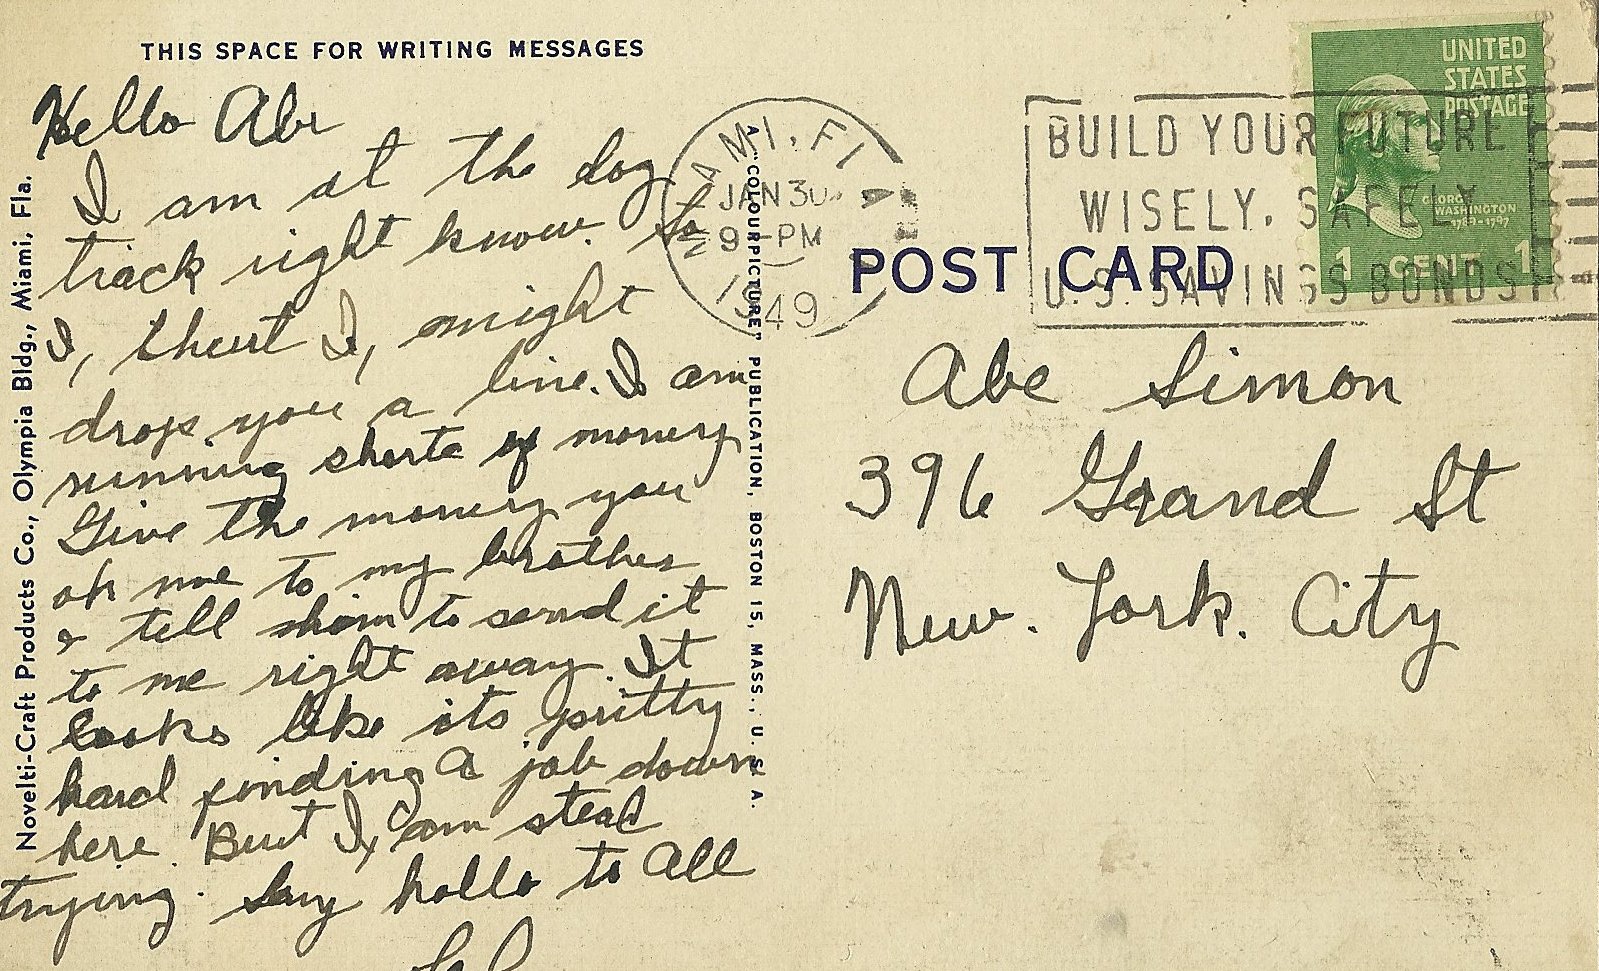 THIS SPACE FOR WRITING MESSAGES
Hello Abe
I am at the dog
track right know. So
I, thurt I, might
drop you a line. I am
running shorte of money
Give the money you
oh me to my brother
& tell him to send it
to me right away. It
looks like its pritty
hard finding a job down
here. But I, am steal
trying. Say hello to all
Novelti-Craft Products Co., Olympia Bldg., Miami, Fla.
A "COLOURPICTURE" PUBLICATION, BOSTON 15, MASS., U. S. A.
MIAMI, FLA
JAN 30
9 - PM
1949
BUILD YOUR FUTURE
WISELY, SAFELY
U.S. SAVINGS BONDS
UNITED
STATES
POSTAGE
GEORGE
WASHINGTON
1789-1797
1 CENT 1
POST CARD
Abe Simon
396 Grand St
New. York. City